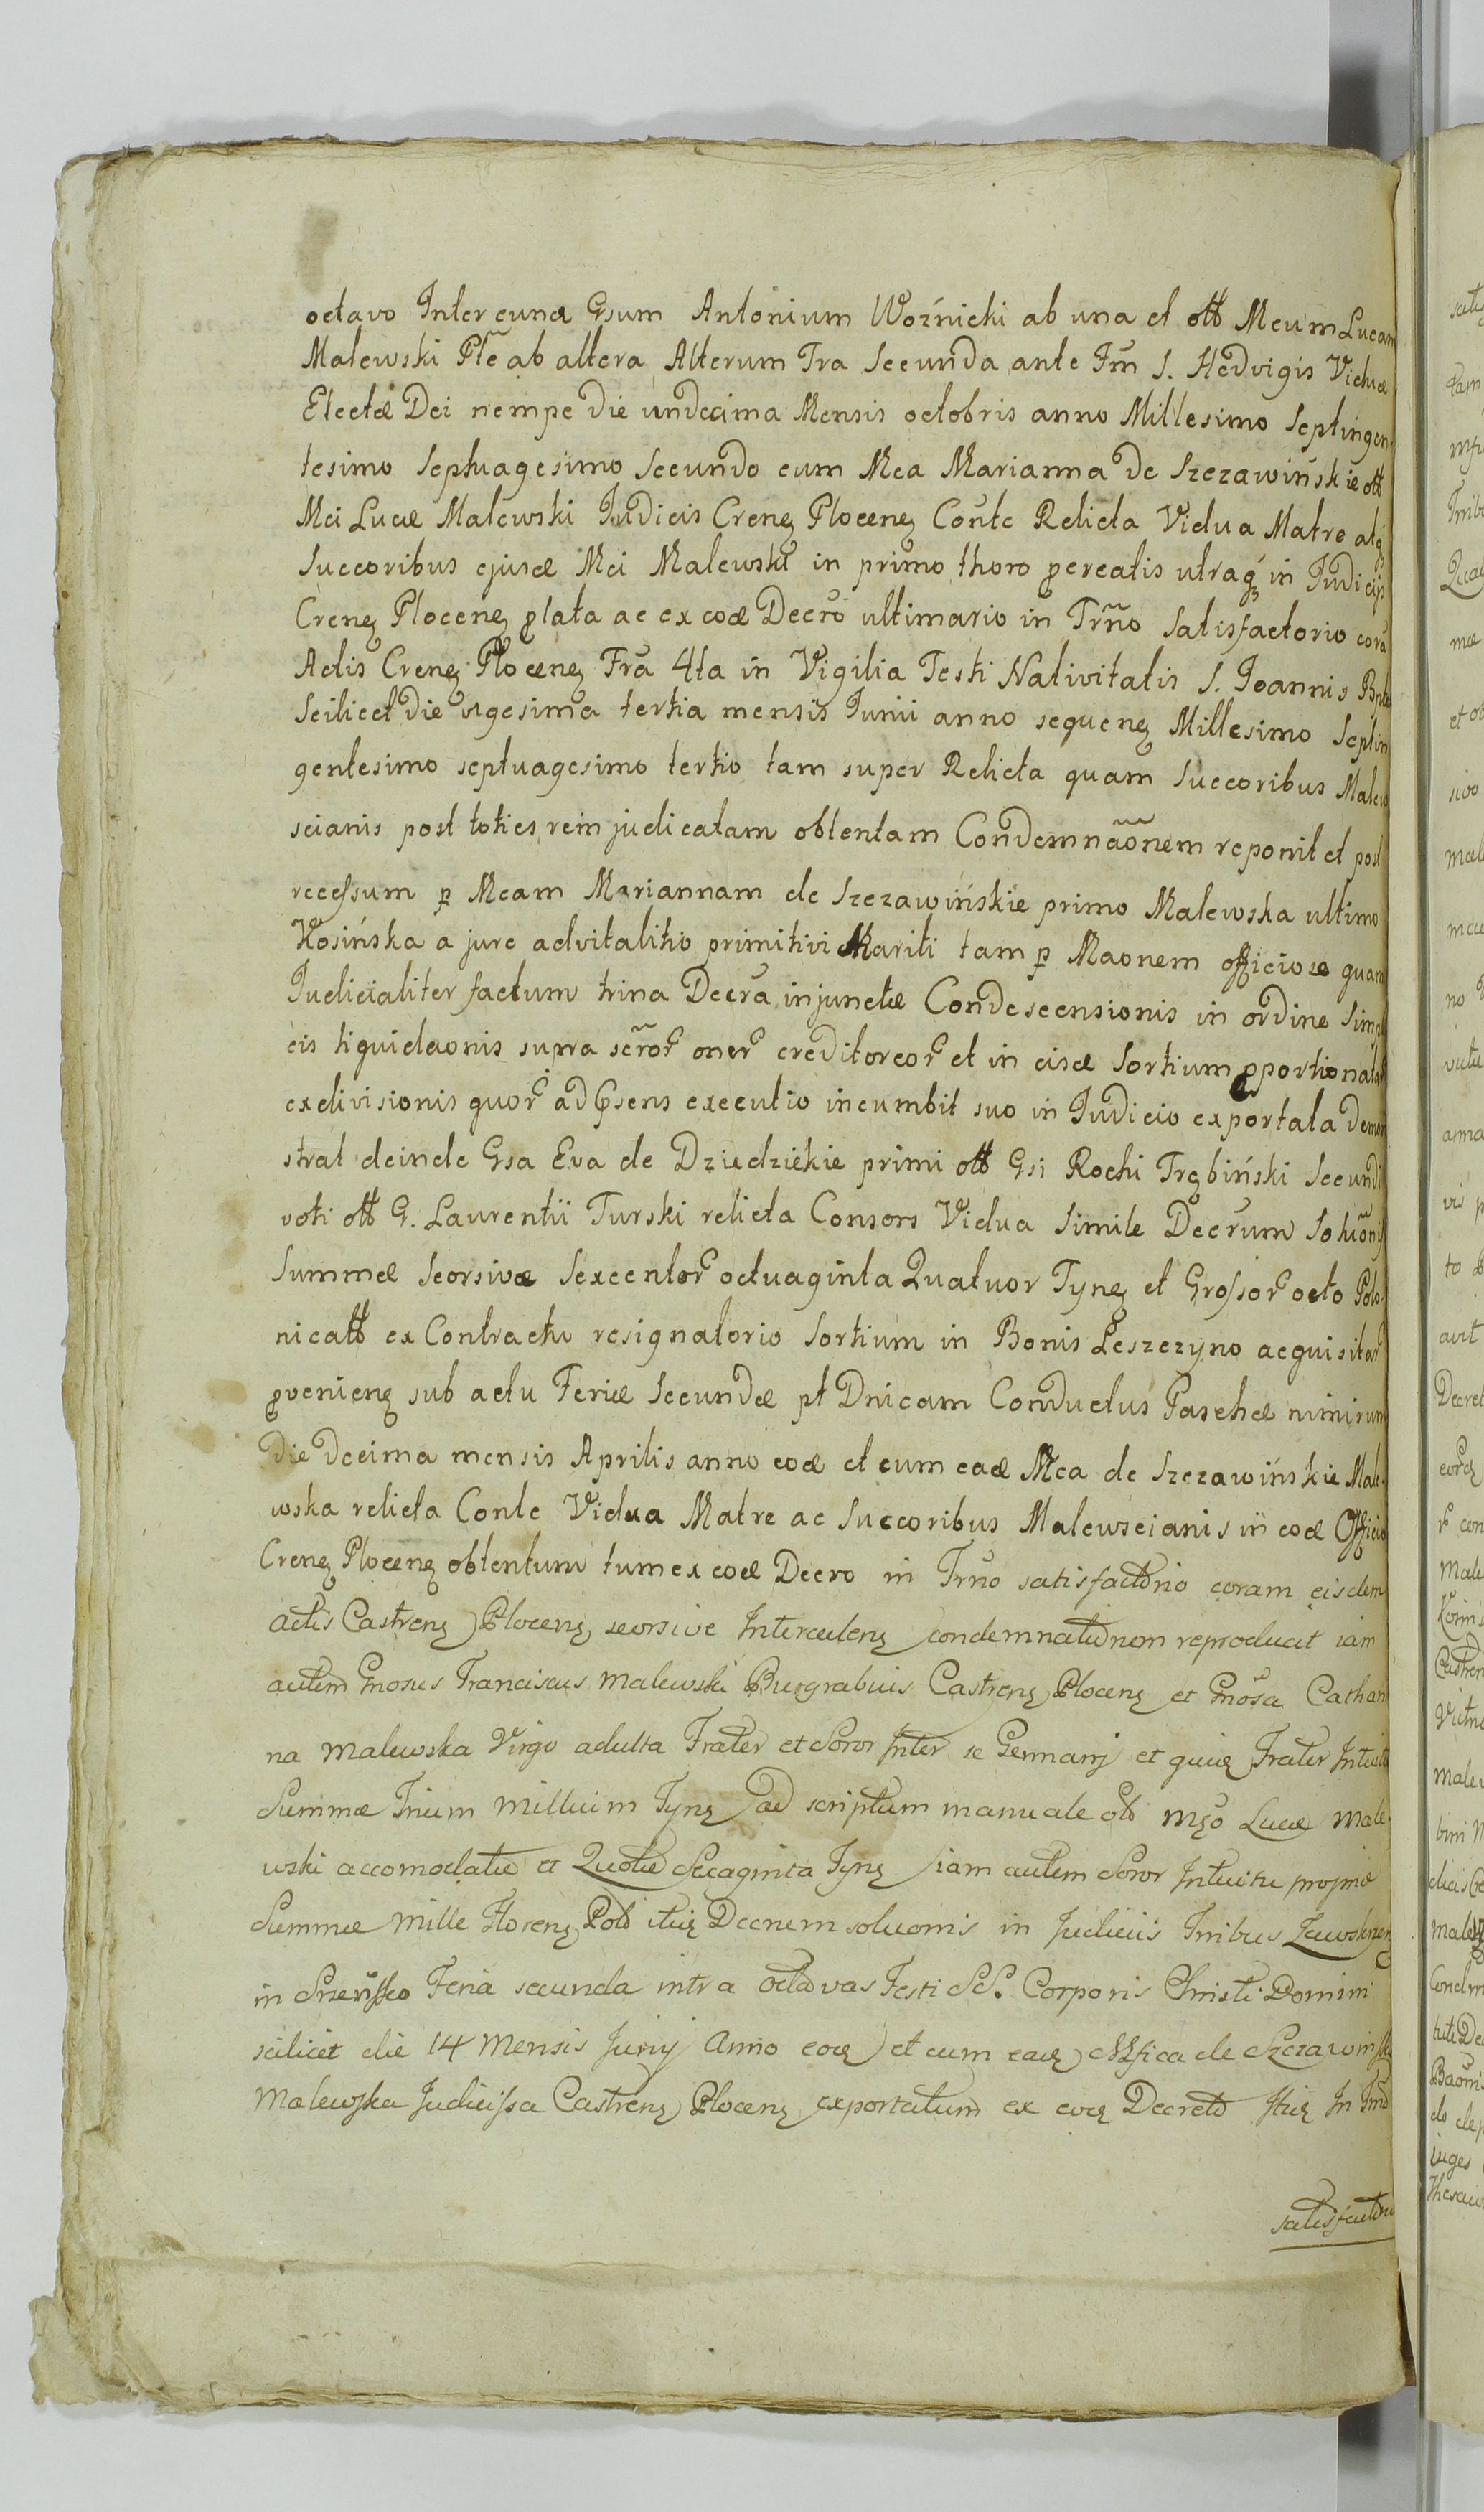 octavo Inter eund Gsum Antonium Woźnicki ab una et ott Mcum Lucam
Malewski Ptẽ ab altera Alterum Fra Secunda ante Fm̃ S. Hedvigis Viduæ
Electæ Dei nempe die undecima Mensis octobris anno Millesimo Septingen-
tesimo Septuagesimo Secundo cum Mca Marianna de Szczawińskie ott
Mci Lucæ Malewski Judicis Crenς Plocenς Conte Relicta Vidua Matre atq
Succoribus ejusd Mci Malewski in primo thoro pcreatis utraq in Judicijs
Crenς Plocenς plata ac ex eod Decro ultimario in Trño Satisfactorio corã
Actis Crenς Plocenς Fra 4ta in Vigilia Festi Nativitatis S. Joannis Bptæ
Scilicet die vigesima tertia mensis Junii anno sequenς Millesimo Septin
gentesimo septuagesimo tertio tam super Relicta quam Succoribus Malew
scianis post toties rem judicatam obtentam Condemnãonem reponit et post
recessum p Mcam Mariannam de Szczawińskie primo Malewska ultimo
Kosińska a jure advitalitio primitivi Mariti tam p Maonem officiose quam
Judicialiter factum trina Decra injunctæ Condescensionis in ordine Simpli
cis liquidaonis supra scr̃or oner creditoreor et in eisd Sortium pportionalar
exdivisionis quor ad psens executio incumbit suo in Judicio exportata demon
strat deinde Gsa Eva de Dziedzickie primi ott Gsi Rochi Trębiński Secundi
voti ott G. Laurentii Turski relicta Consors Vidua Simile Decrum Solũonis
Summæ Seorsivæ Sexcentor octuaginta Quatuor Tynς et Grossor octo Polo-
nicatt ex Contractu resignatorio Sortium in Bonis Leszczyno acquisitar
pvenienς sub actu Feriæ Secundæ pt Dnicam Conductus Paschæ nimirum
die decima mensis Aprilis anno eod et cum ead Mca de Szczawińskie Male-
wska relicta Conte Vidua Matre ac Succoribus Malewscianis in eod Officio
Crenς Plocenς obtentum tum ex eod Decro in Trño satisfactorio coram eisdem
actis Castrenς Plocenς seorsive Intercedenς condemnationem reproducit iam
autem Gnosus Franciscus Malewski Burgrabius Castrenς Plocenς et Gnõsa Cathari
na Malewska Virgo adulta Frater et Soror Inter se Germanj et quid Frater Intuitu
Summæ Trium Millium Tynς ad scriptum manuale ott Mço Lucæ Male-
wski accomodatæ et Quotæ Sexaginta Tynς iam autem Soror Intuitu propriæ
Summæ Mille Florenς Pol Decnem soluonis in Judiciis Tribus
in Feria secunda intra octavas Festi SS. Corporis Christi Domini
scilicet die 14 Mensis Junij Anno eod et cum ead Mfica de Szczawinskie
Malewska Judicissa Castrenς Plocenς exportatum ex eod Decreto In Trno
satisfactorio